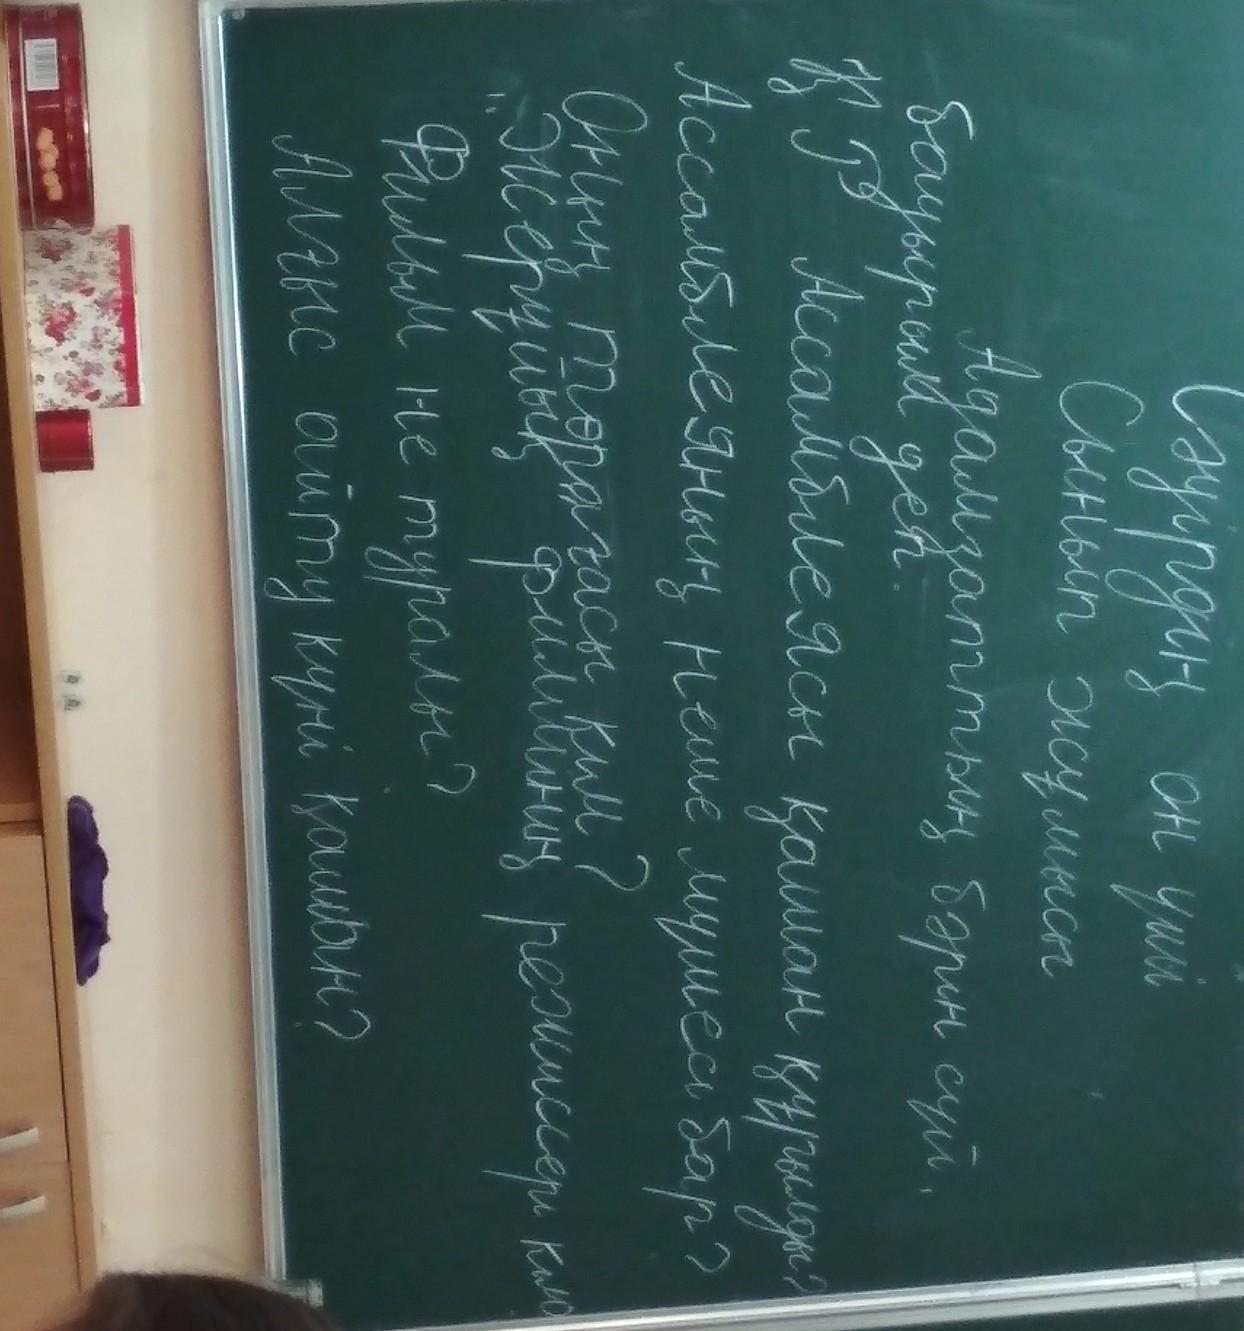 Сәуірдің он үші
Сынып жұмысы
Адамзаттың бәрін сүй,
бауырым деп.
ҚР Ассамблеясы қашан құрылды?
Ассамблеяның неше мүшесі бар?
Оның төрағасы кім?
"Жерұйық" фильмінің режиссері кім
Фильм не туралы?
Алғыс айту күні қашан?